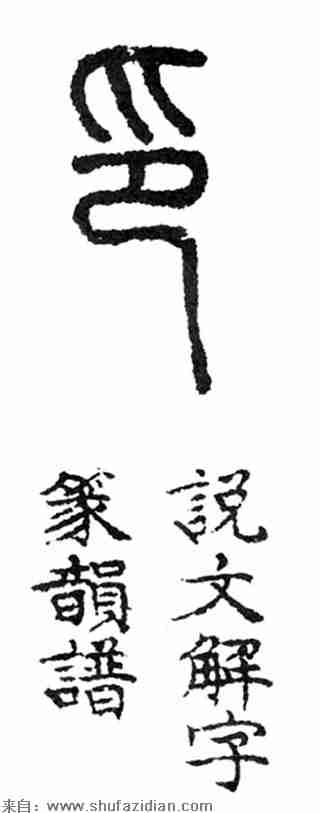 印
說文解字
篆韻譜
来自：www.shufazidian.com